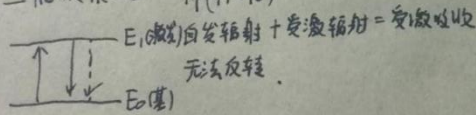 E₁(激发)自发辐射 + 受激辐射 = 受激吸收
无法反转.
E₀(基)